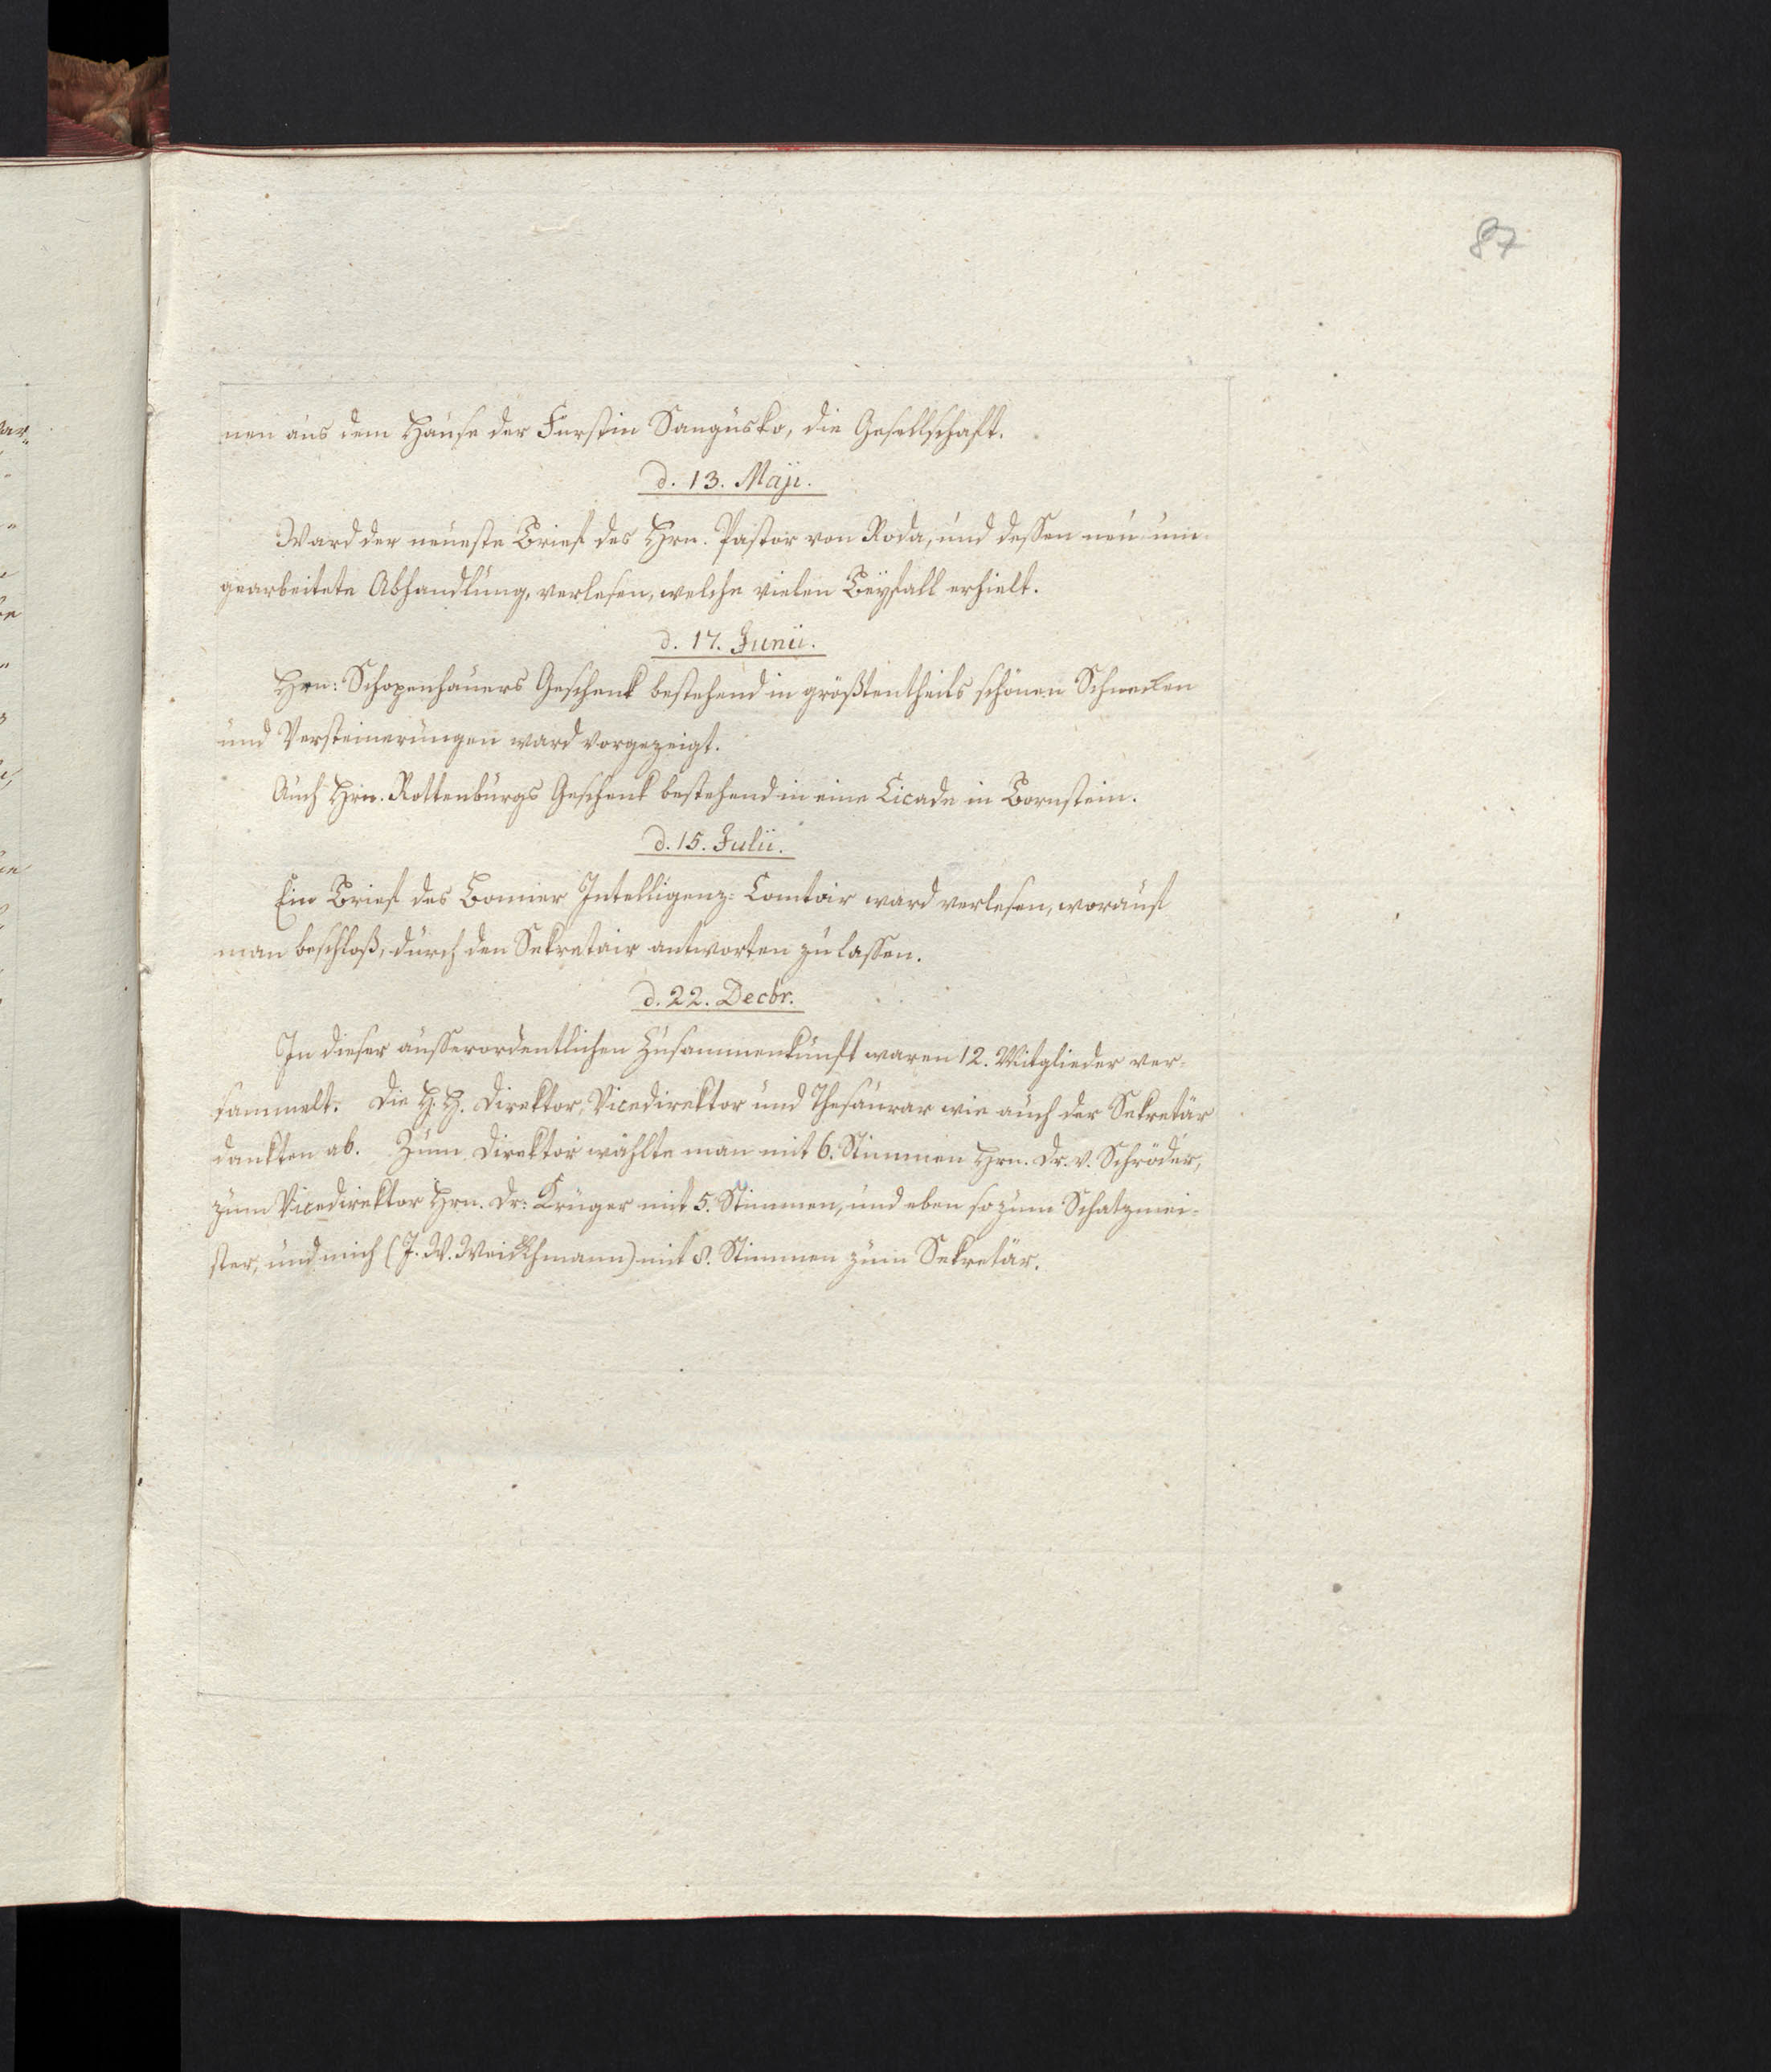 87
nen aus dem Hause der Fürstin Sangusko, die Gesellschaft.
d. 13. Maji.
Ward der neueste Brief des Hrn. Pastor von Roda, und deßen neu um-
gearbeitete Abhandlung, verlesen, welche vielen Beyfall erhielt.
d. 17. Junii.
Hrn: Schopenhauers Geschenk bestehend in größtentheils schönen Schnecken
und Versteinerungen ward vorgezeigt.
Auch Hrn. Rottenburgs Geschenk bestehend in eine Cicade in Bornstein.
d. 15. Julii.
Ein Brief des Bonner Intelligenz-Comtoir ward verlesen, worauf
man beschloß, durch den Sekretair antworten zu laßen.
d. 22. Decbr.
In dieser außerordentlichen Zusammenkunft waren 12. Mitglieder ver-
sammelt. Die H. H. Direktor, Vicedirektor und Thesaurar wie auch der Sekretär
dankten ab. Zum Direktor wählte man mit 6. Stimmen Hrn. Dr. v. Schröder,
zum Vicedirektor Hrn. Dr: Krüger mit 5. Stimmen, und eben so zum Schatzmei-
ster, und mich (J. W. Weickhmann) mit 8. Stimmen zum Sekretär.